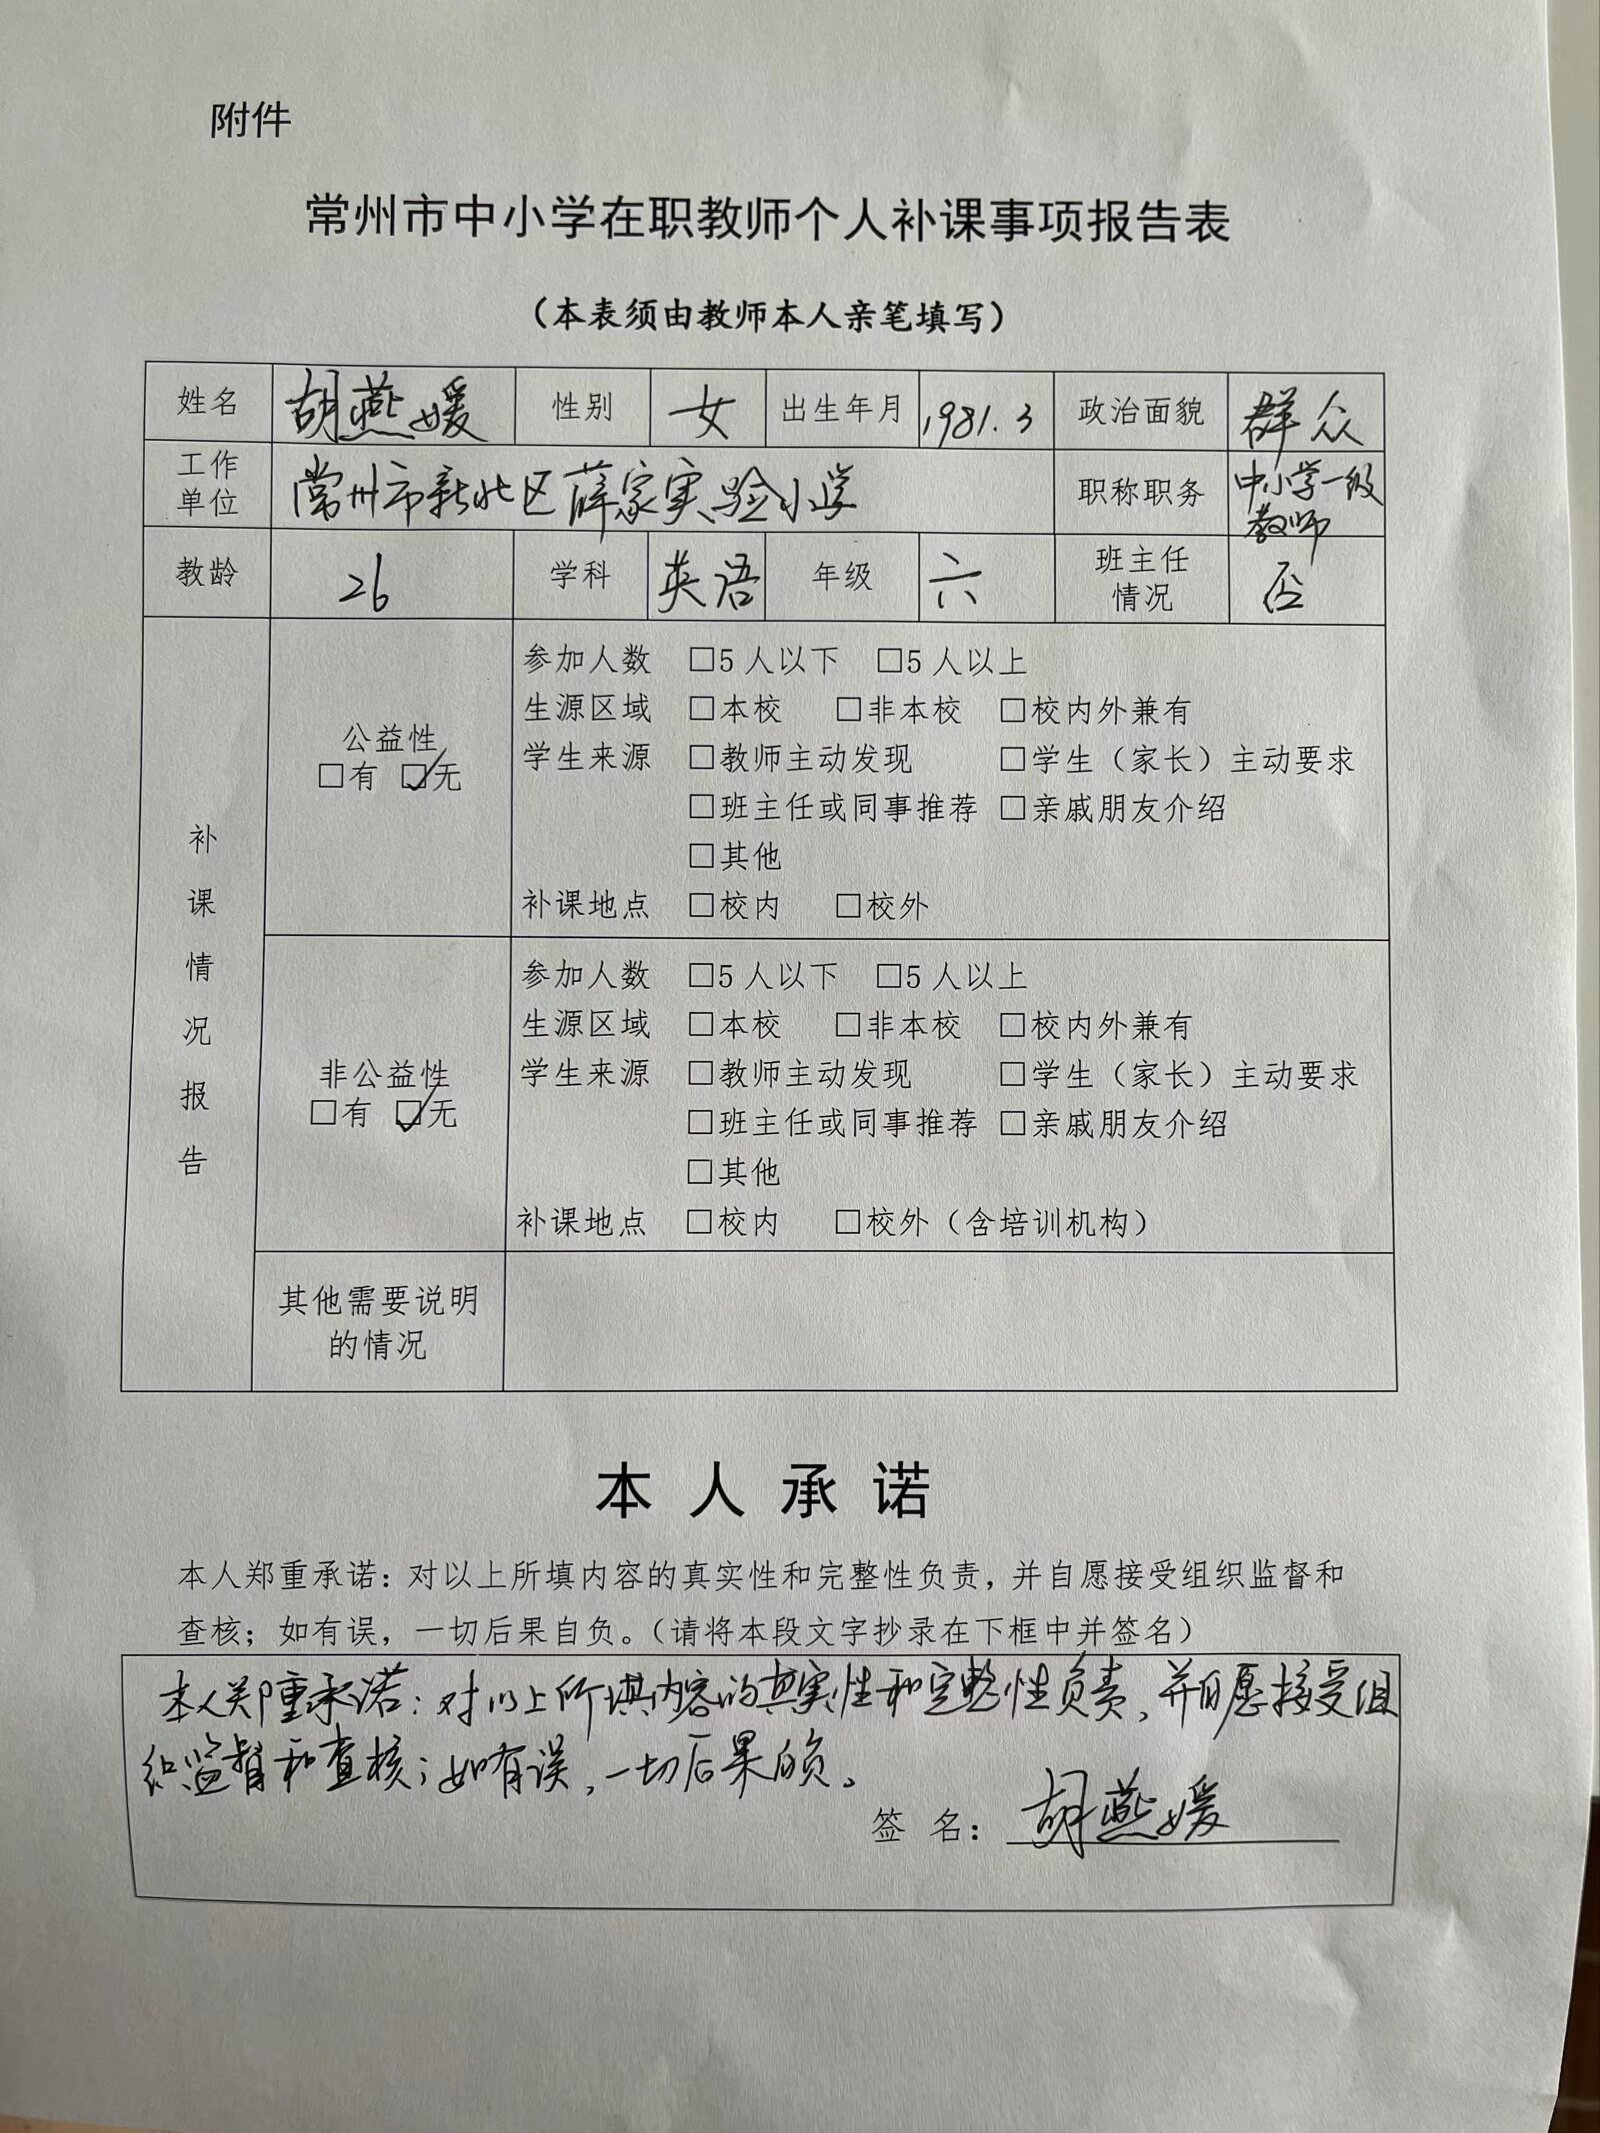 附件
常州市中小学在职教师个人补课事项报告表
（本表须由教师本人亲笔填写）
姓名 胡燕媛 性别 女 出生年月 1981.3 政治面貌 群众
工作单位 常州市新北区薛家实验小学 职称职务 中小学一级教师
教龄 26 学科 英语 年级 六 班主任情况 否
补课情况报告
公益性
□有 ☑无
参加人数 □5人以下 □5人以上
生源区域 □本校 □非本校 □校内外兼有
学生来源 □教师主动发现 □学生（家长）主动要求
□班主任或同事推荐 □亲戚朋友介绍
□其他
补课地点 □校内 □校外
非公益性
□有 ☑无
参加人数 □5人以下 □5人以上
生源区域 □本校 □非本校 □校内外兼有
学生来源 □教师主动发现 □学生（家长）主动要求
□班主任或同事推荐 □亲戚朋友介绍
□其他
补课地点 □校内 □校外（含培训机构）
其他需要说明
的情况
本人承诺
本人郑重承诺：对以上所填内容的真实性和完整性负责，并自愿接受组织监督和
查核；如有误，一切后果自负。（请将本段文字抄录在下框中并签名）
本人郑重承诺：对以上所填内容的真实性和完整性负责，并自愿接受组
织监督和查核；如有误，一切后果自负。
签 名：胡燕媛